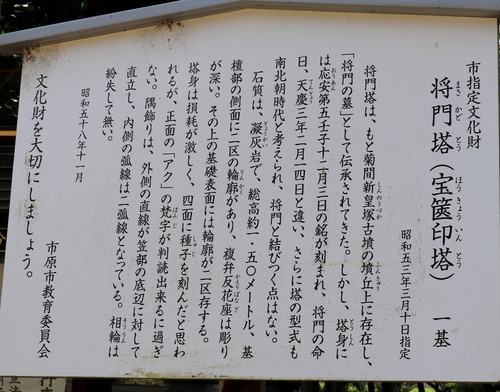 市指定文化財
将門塔（宝篋印塔）　一基
まさかどとう　ほうきょういんとう
昭和五三年三月十日指定
将門塔は、もと菊間新皇塚古墳の墳丘上に存在し、
「将門の墓」として伝承されてきた。しかし、塔身に
は応安第五壬子十二月三日の銘が刻まれ、将門の命
日、天慶三年二月一四日と違い、さらに塔の型式も
南北朝時代と考えられ、将門と結びつく点はない。
石質は、凝灰岩で、総高約一・五〇メートル、基
檀部の側面に二区の輪廓があり、複弁反花座は彫り
が深い。その上の基礎表面には輪廓が二区存する。
塔身は損耗が激しく、四面に種子を刻んだと思わ
れるが、正面の「アク」の梵字が判読出来るに過ぎ
ない。隅飾りは、外側の直線が笠部の底辺に対して
直立し、内側の弧線は二弧線となっている。相輪は
紛失して無い。
昭和五十八年十一月
市原市教育委員会
文化財を大切にしましょう。